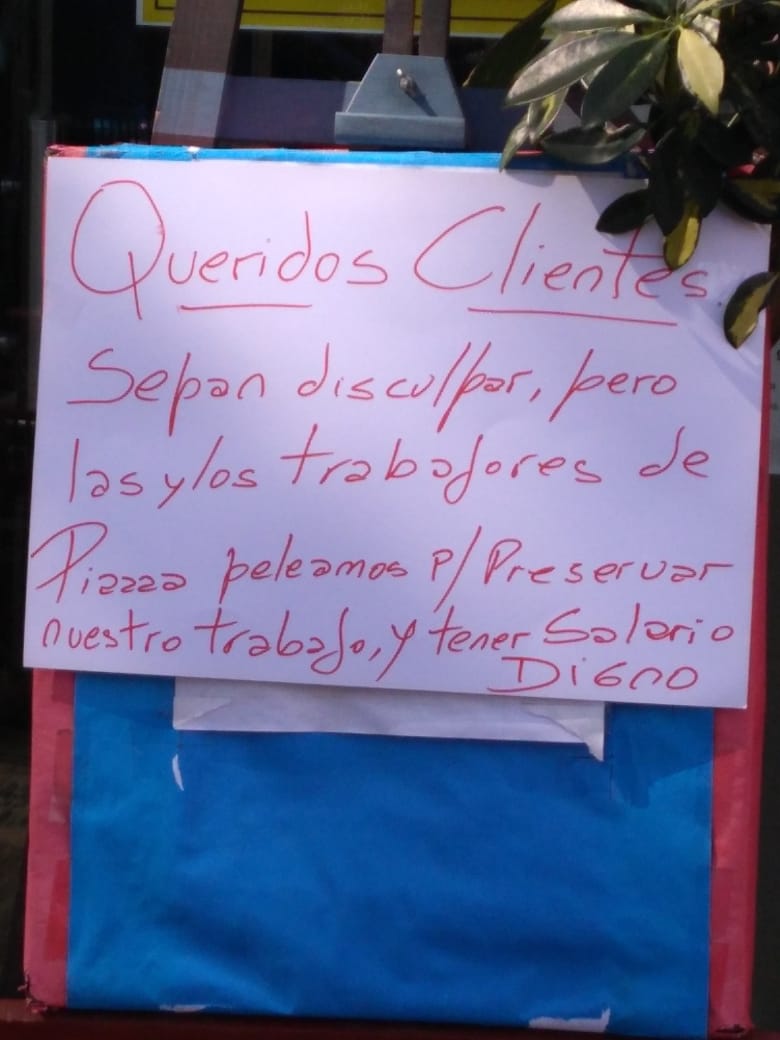 Queridos Clientes
Sepan disculpar, pero
las y los trabajores de
Piazza peleamos p/Preservar
nuestro trabajo, y tener Salario
DiGno